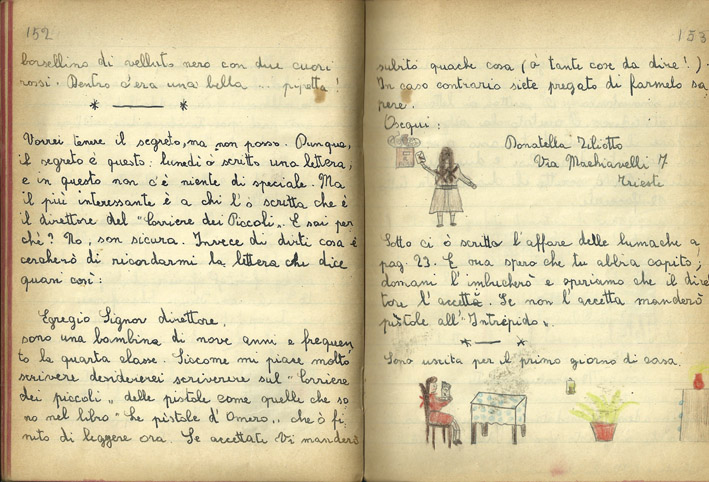 152
borsellino di velluto nero con due cuori
rossi. Dentro c'era una bella ... pupetta!
* — *
Vorrei tenere il segreto, ma non posso. Dunque,
il segreto è questo: lunedì ò scritto una lettera,
e in questo non c'è niente di speciale. Ma
il più interessante è a chi l'ò scritta che è
il direttore del "Corriere dei Piccoli". E sai per
chè? No, son sicura. Invece di dirti cosa è
cercherò di ricordarmi la lettera che dice
quasi così:
Egregio Signor direttore,
sono una bambina di nove anni e frequen
to la quarta classe. Siccome mi piace molto
scrivere desidererei scriverere sul "Corriere
dei piccoli" delle pistole come quelle che so
no nel libro "Le pistole d'Omero", che ò fi
nito di leggere ora. Se accettate Vi manderò
153
subito quache cosa (ò tante cose da dire!).
In caso contrario siete pregato di farmelo sa
pere.
Osequi:
Donatella Ziliotto
Via Machiavelli 7
Trieste
Sotto ci ò scritto l'affare delle lumache a
pag. 23. E ora spero che tu abbia capito;
domani l'imbucherò e speriamo che il dire
tore l'accetti. Se non l'accetta manderò
pistole all'"Intrepido".
* — *
Sono uscita per il primo giorno di casa.